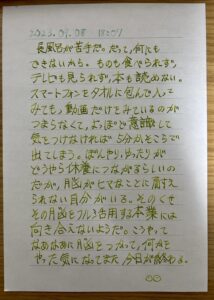 2023.01.08
長風呂が苦手だ。だって、何にも
できないから。ものも食べられず、
テレビも見られず、本も読めない。
スマートフォンをタオルに包んで入って
みても、動画だけをみているのが
つまらなくて、よっぽど意識して
気をつけなければ5分かそこらで
出てしまう。ぼんやり、ゆったりが
どうやら休養につながるらしいの
だが、脳がヒマなことに耐えす
られない自分がいる。そのくせ
その脳をフル活用する本業には
向き合えないようだ。こうやって
なあなあに脳をつかって、何かを
やった気になってまた今日が終わる。